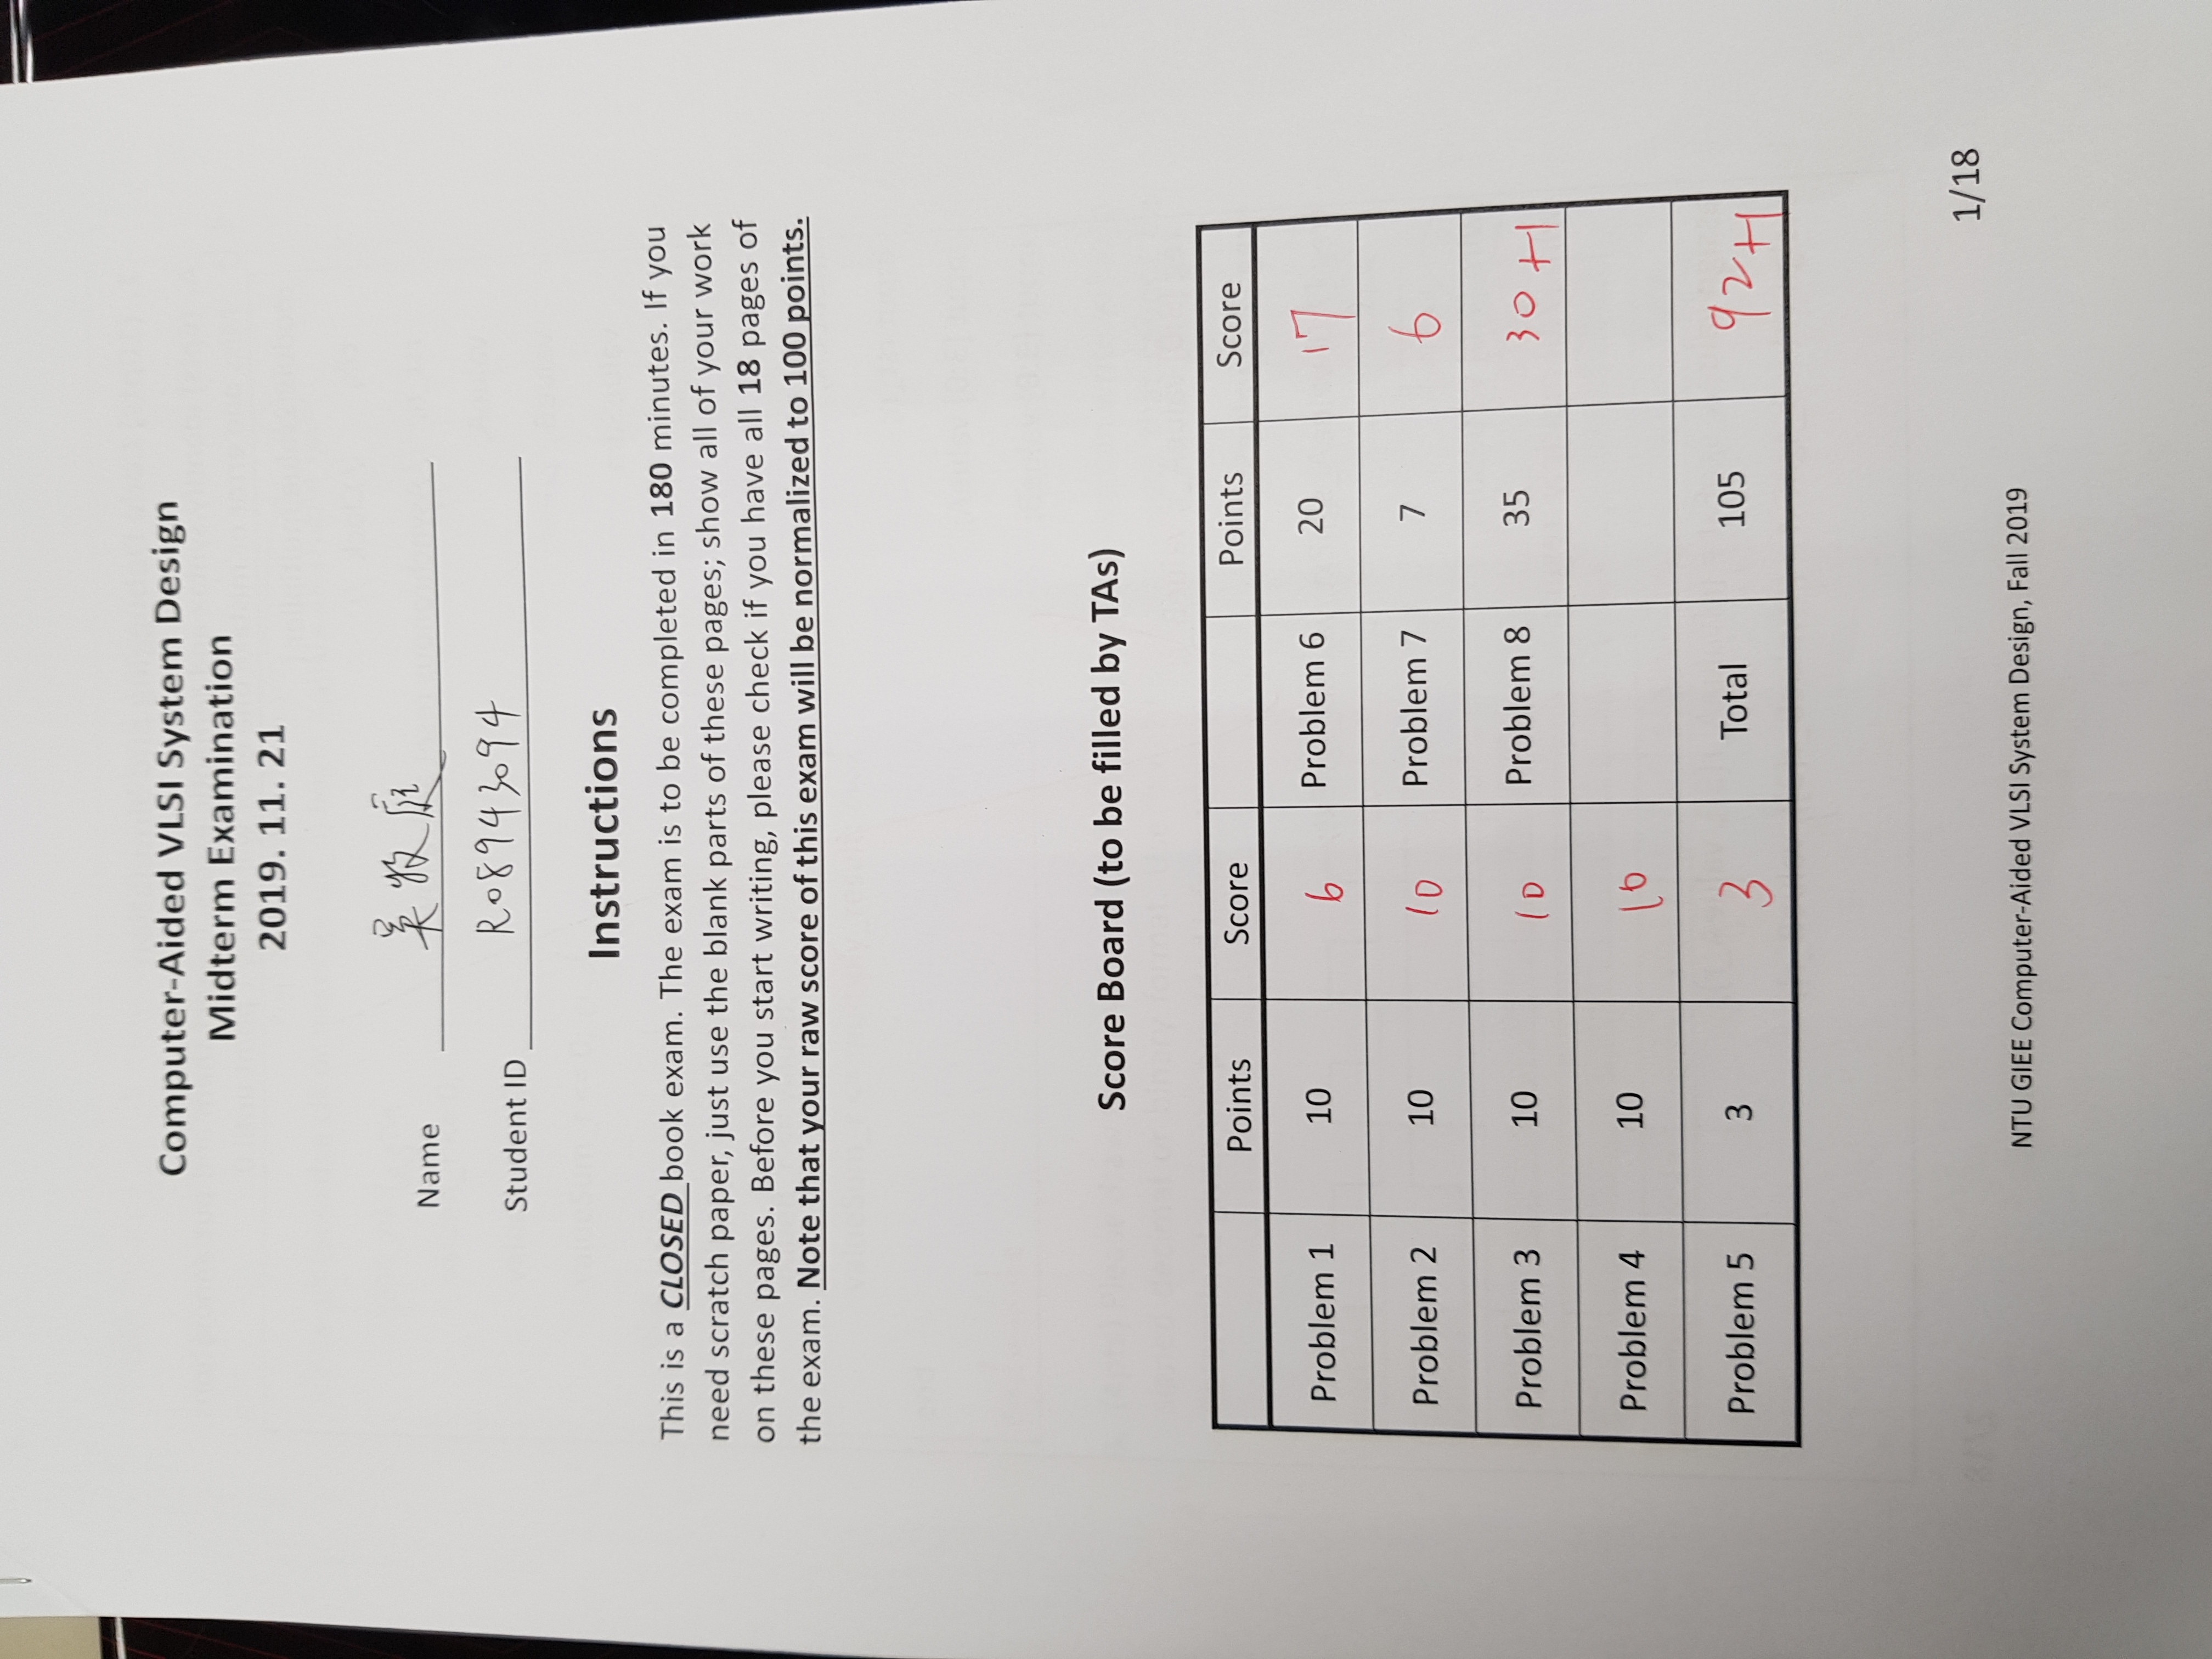 Computer-Aided VLSI System Design
Midterm Examination
2019. 11. 21
Name 吳牧庭
Student ID R08943094
Instructions
This is a CLOSED book exam. The exam is to be completed in 180 minutes. If you
need scratch paper, just use the blank parts of these pages; show all of your work
on these pages. Before you start writing, please check if you have all 18 pages of
the exam. Note that your raw score of this exam will be normalized to 100 points.
Score Board (to be filled by TAs)
Points Score Points Score
Problem 1 10 6 Problem 6 20 17
Problem 2 10 10 Problem 7 7 6
Problem 3 10 10 Problem 8 35 30 +1
Problem 4 10 10
Problem 5 3 3 Total 105 92+1
1/18
NTU GIEE Computer-Aided VLSI System Design, Fall 2019